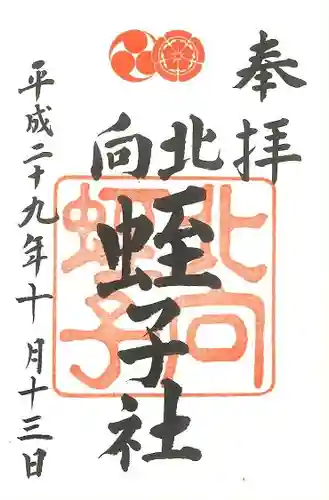 奉拝
北向
蛭子社
平成二十九年十月十三日
北向
蛭子